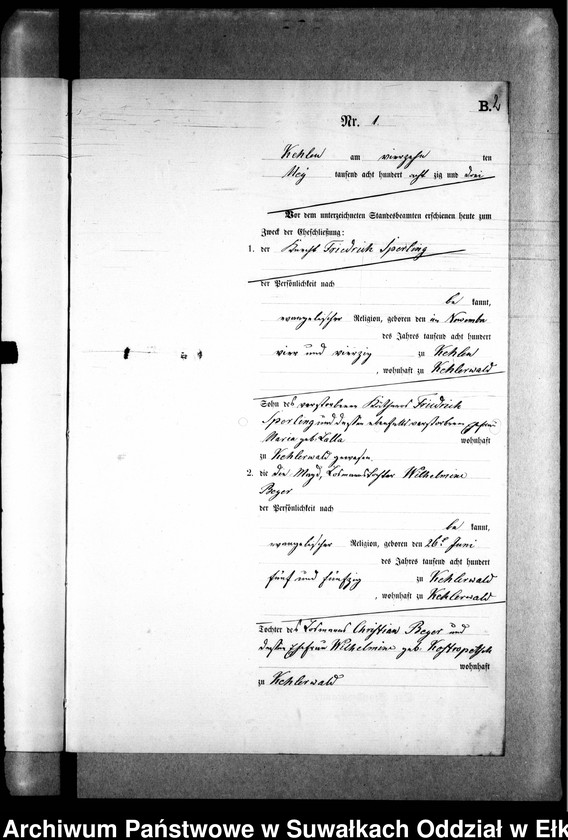 B. 2
Nr. 1
Kehlen am vierzehn ten
May tausend acht hundert acht zig und drei
Vor dem unterzeichneten Standesbeamten erschienen heute zum
Zweck der Eheschließung:
1. der Knecht Friedrich Sperling
der Persönlichkeit nach
be kannt,
evangelischer Religion, geboren den im November
des Jahres tausend acht hundert
vier und vierzig zu Kehlen
, wohnhaft zu Kehlerwald
Sohn des verstorbenen Käthners Friedrich
Sperling und dessen ebenfalls verstorbenen Ehefrau
Maria geb. Lalla wohnhaft
zu Kehlerwald gewesen.
2. die die Magd, Losmannstochter Wilhelmine
Beyer
der Persönlichkeit nach
be kannt,
evangelischer Religion, geboren den 26t Juni
des Jahres tausend acht hundert
fünf und fünfzig zu Kehlerwald
, wohnhaft zu Kehlerwald
Tochter des Losmanns Christian Beyer und
dessen Ehefrau Wilhelmine geb.
wohnhaft
zu Kehlerwald
Archiwum Państwowe w Suwałkach Oddział w Ełk